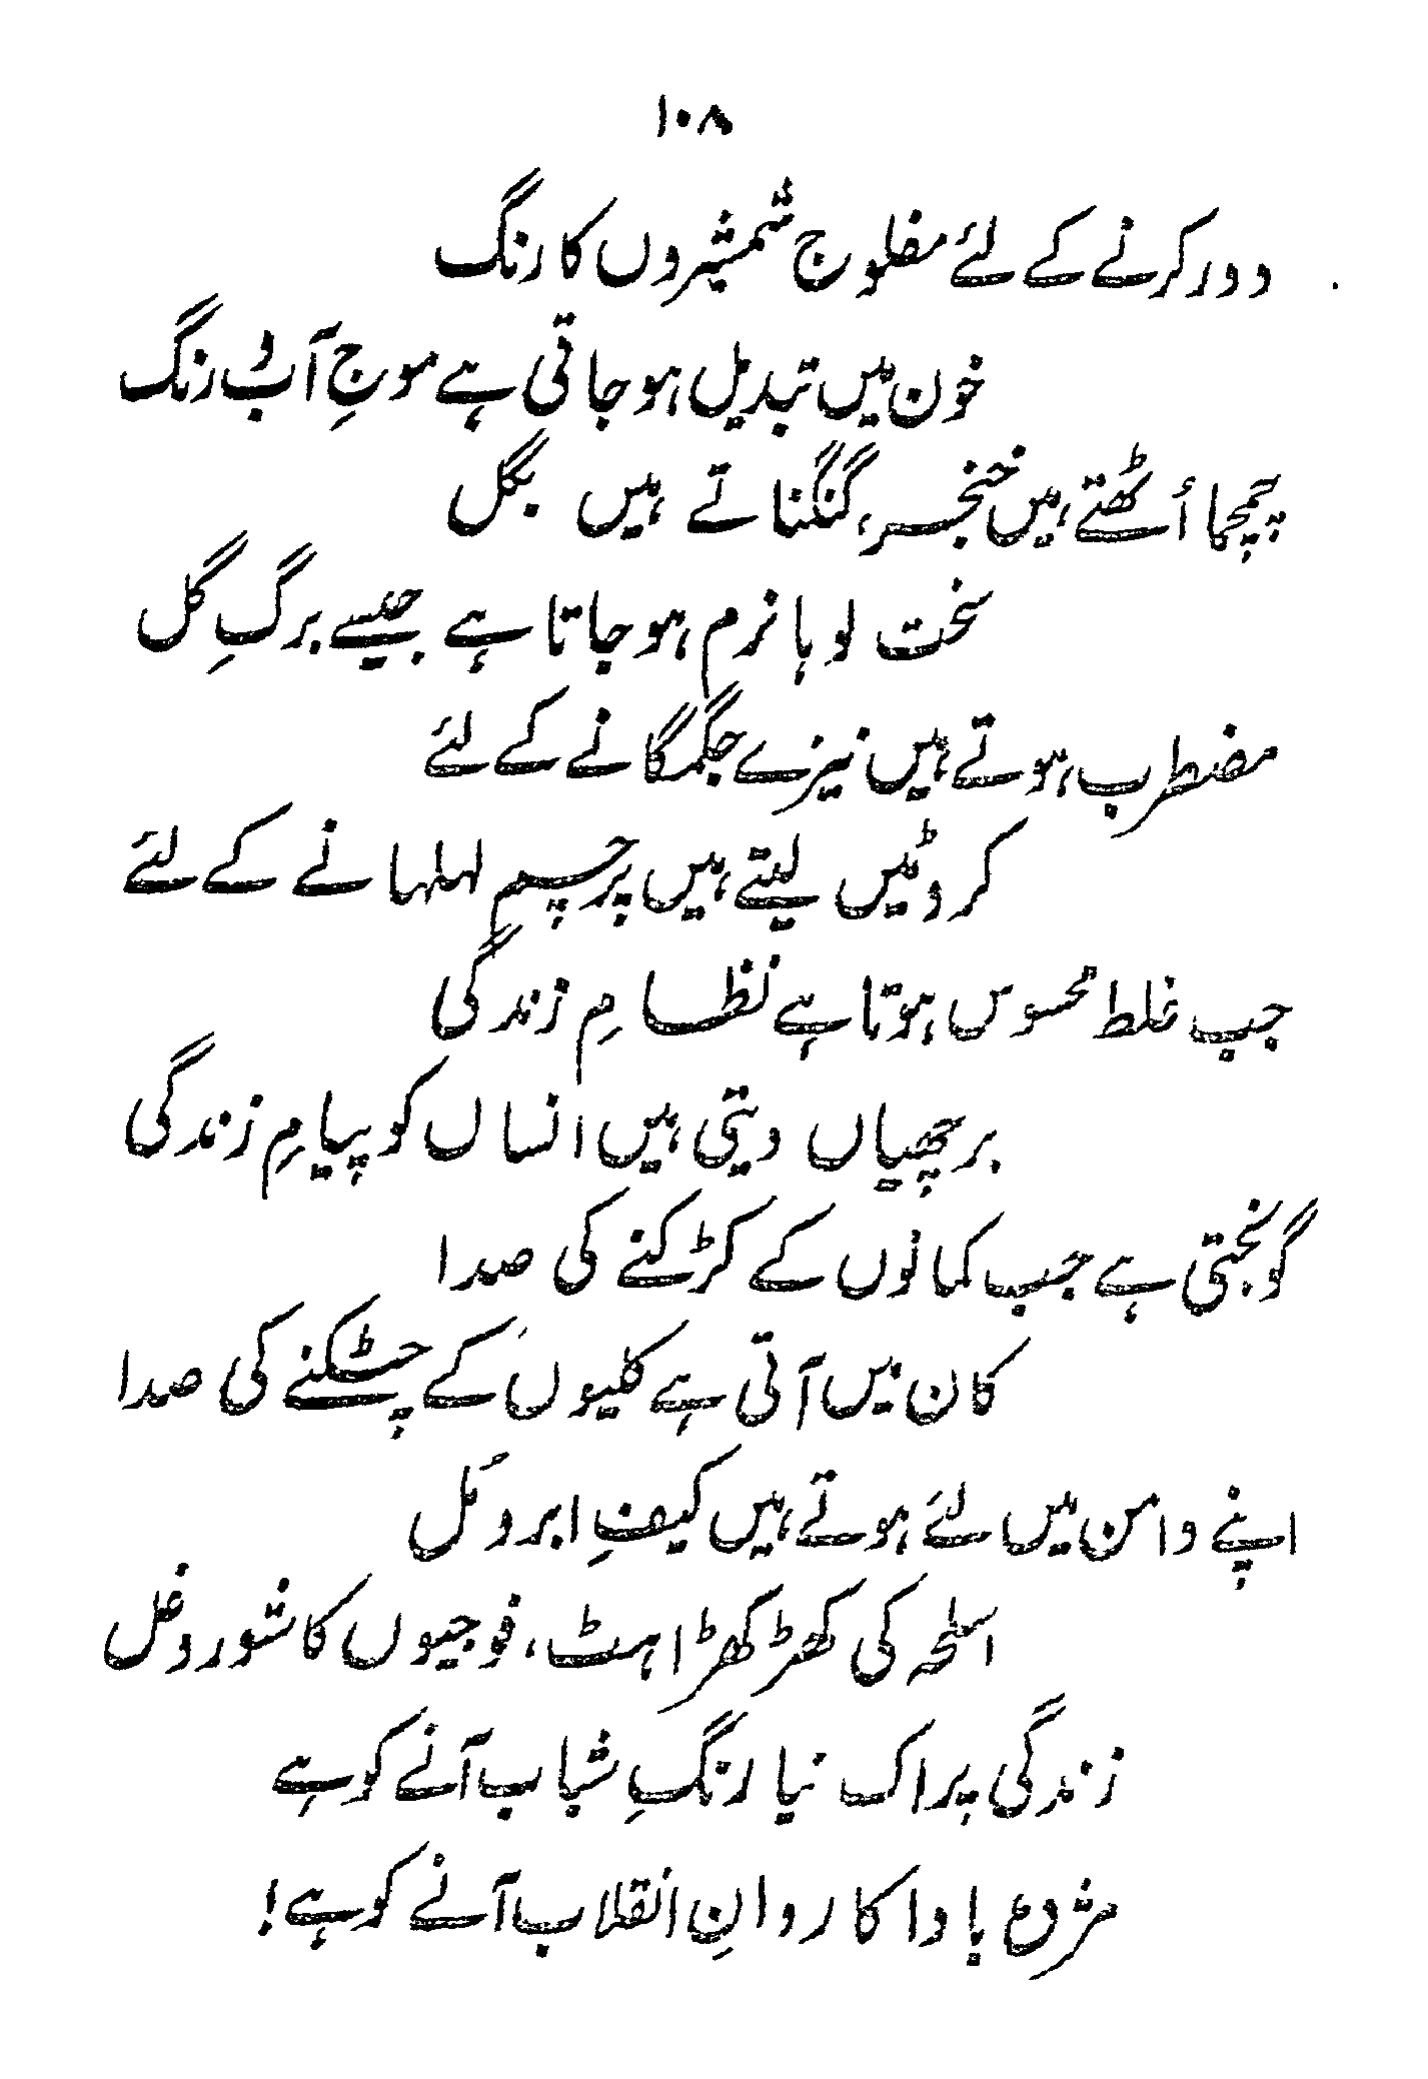 ۱۰۸
دور کرنے کے لئے مفلوج شمشیروں کا رنگ
خون میں تبدیل ہو جاتی ہے موجِ آب و رنگ
چمچما اُٹھتے ہیں خنجر، گنگناتے ہیں بگل
سخت لوہا نرم ہو جاتا ہے جیسے برگِ گل
مضطرب ہوتے ہیں نیزے جگمگانے کے لئے
کروٹیں لیتے ہیں پرچم لہلہانے کے لئے
جب غلط محسوس ہوتا ہے نظامِ زندگی
برچھیاں دیتی ہیں انساں کو پیامِ زندگی
گونجتی ہے جب کمانوں کے کڑکنے کی صدا
کان میں آتی ہے کلیوں کے چٹکنے کی صدا
اپنے دامن میں لئے ہوتے ہیں کیفِ ابر و مُل
اسلحہ کی کھڑکھڑاہٹ، فوجیوں کا شور و غل
زندگی پر اک نیا رنگِ شباب آنے کو ہے
مژدہ بادا کاروانِ انقلاب آنے کو ہے!